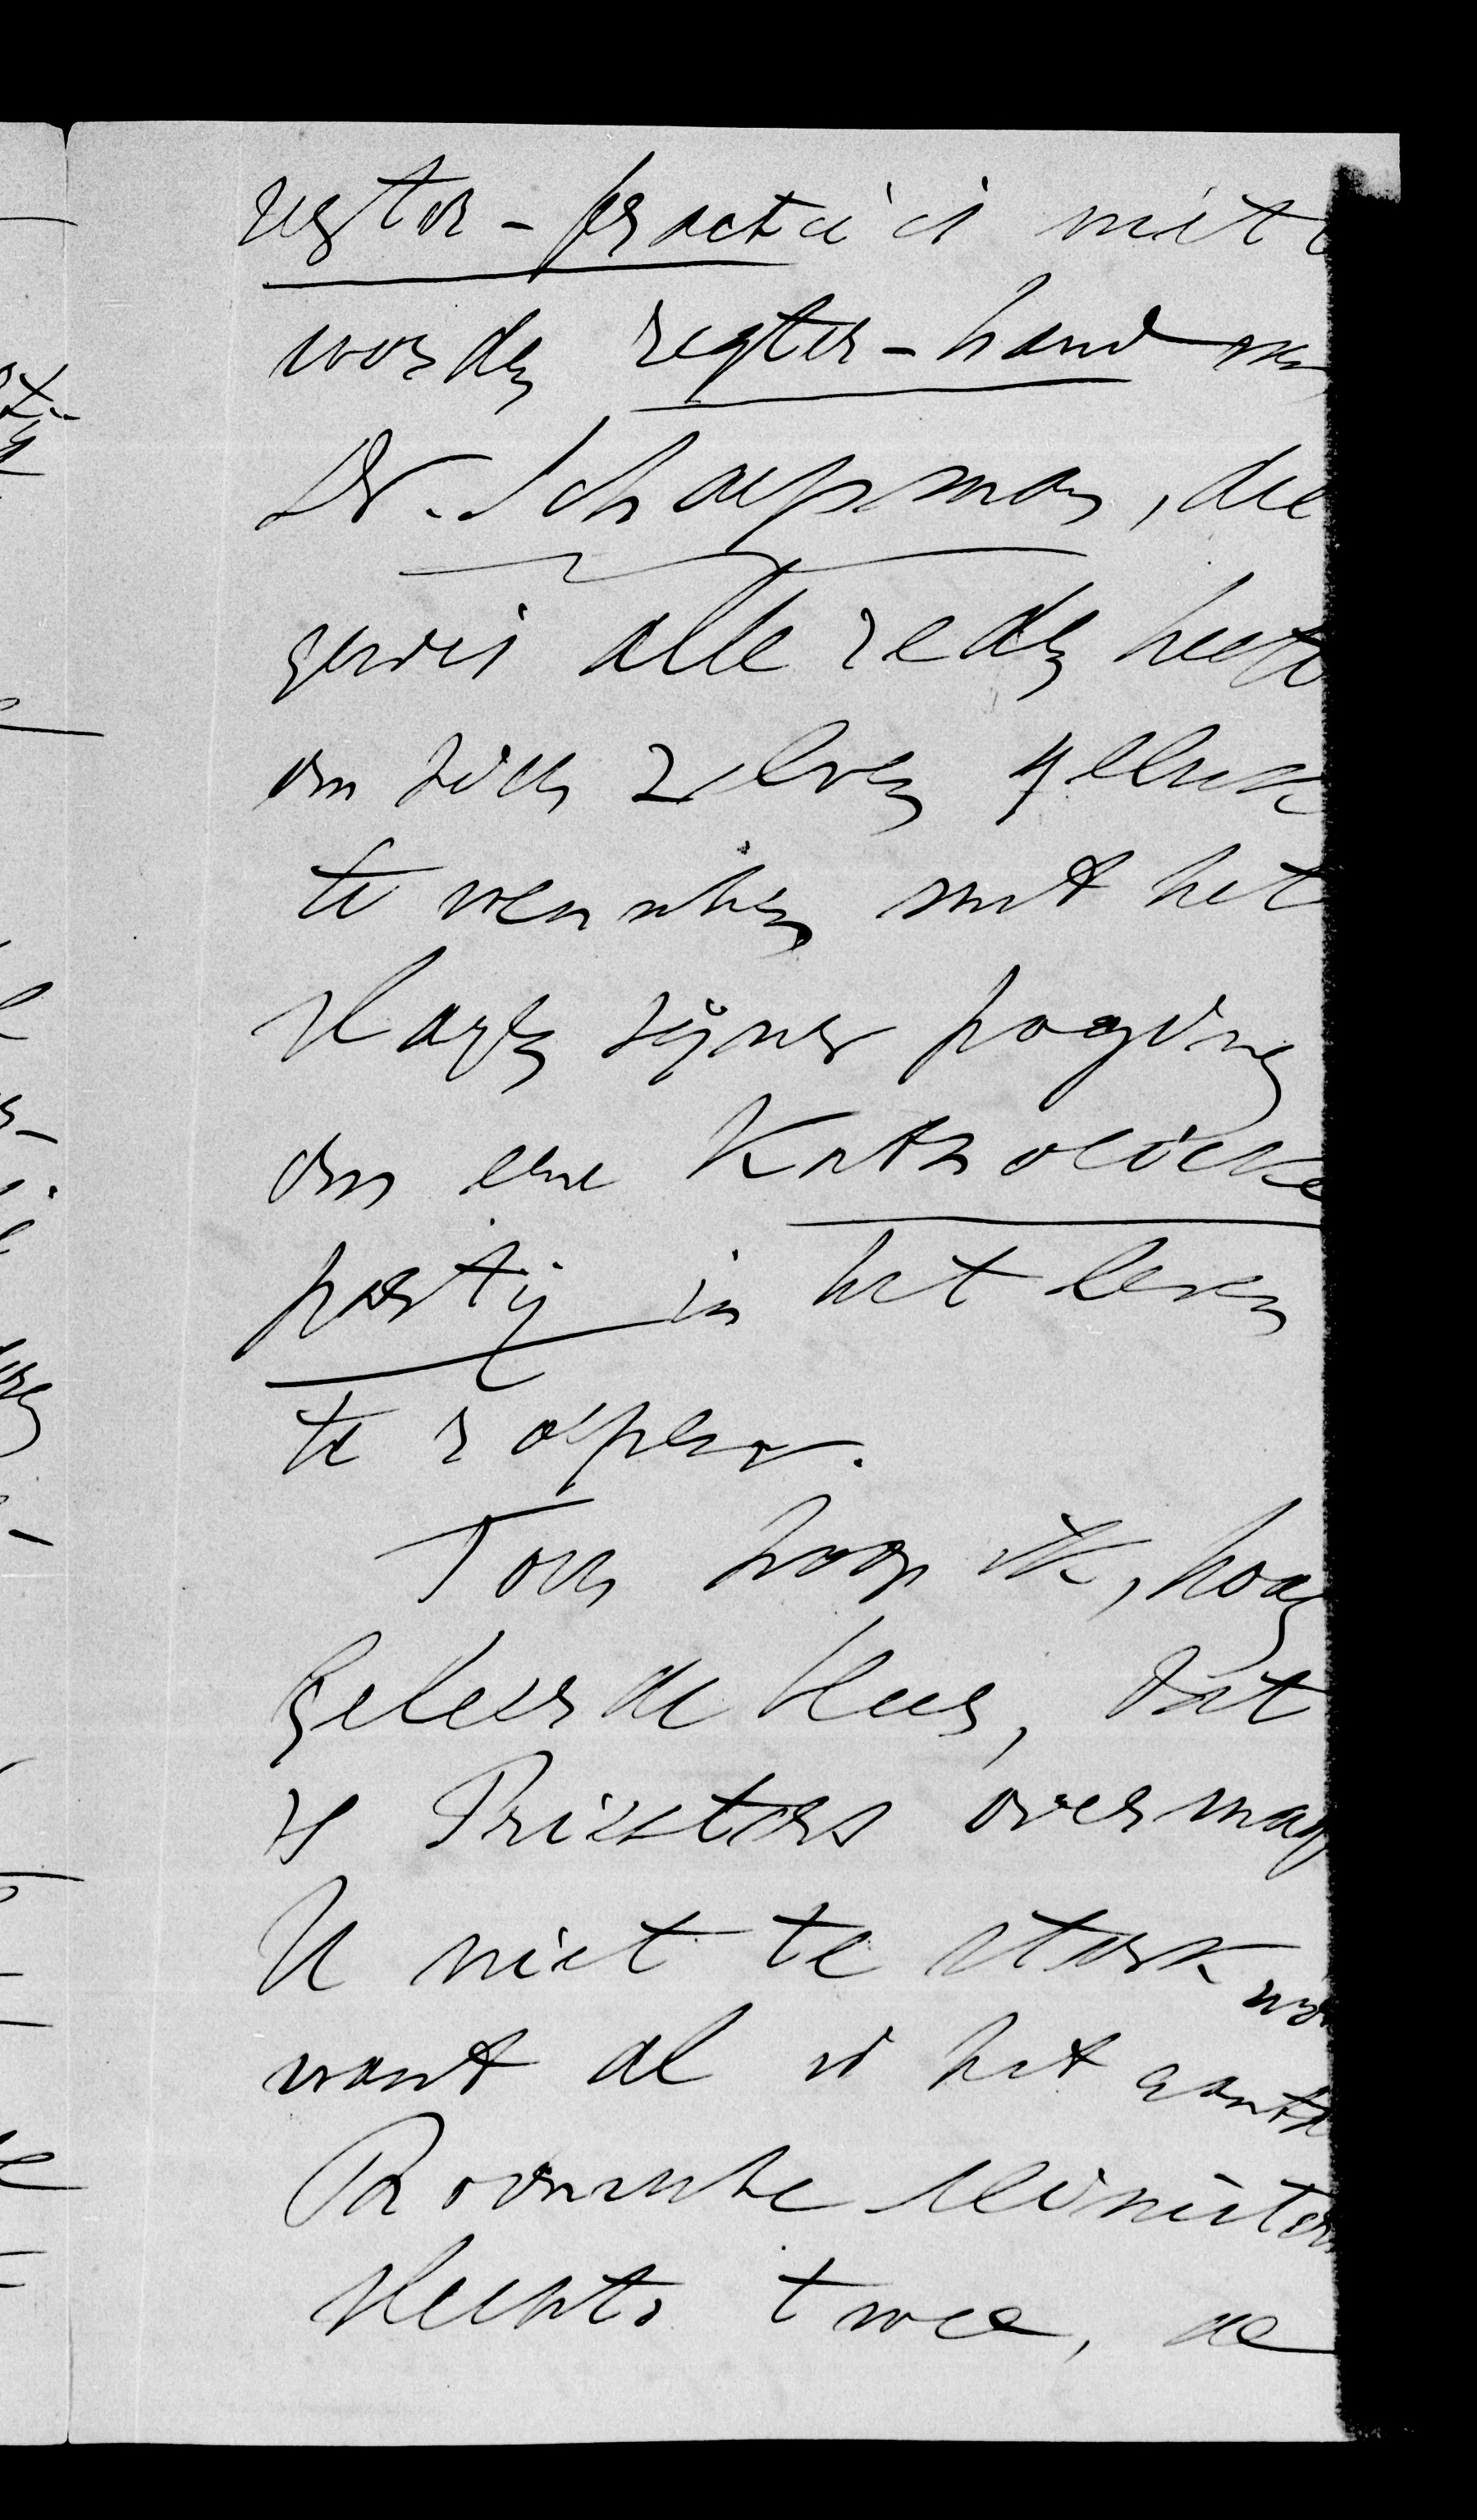 regter-practici is niet
worden regter-hand van
Dr. Schaepman, die
gewis alle reden heeft
om zich zelven geluk
te wenschen met het
slagen zijner poging
om eene Katholieke
partij in het leven
te roepen.
Toch hoop ik, hoog
geleerde Heer, dat
de Priesters overmag
U niet te sterk wo
want al is het aanta
Roomsche Minister
slechts twee, de